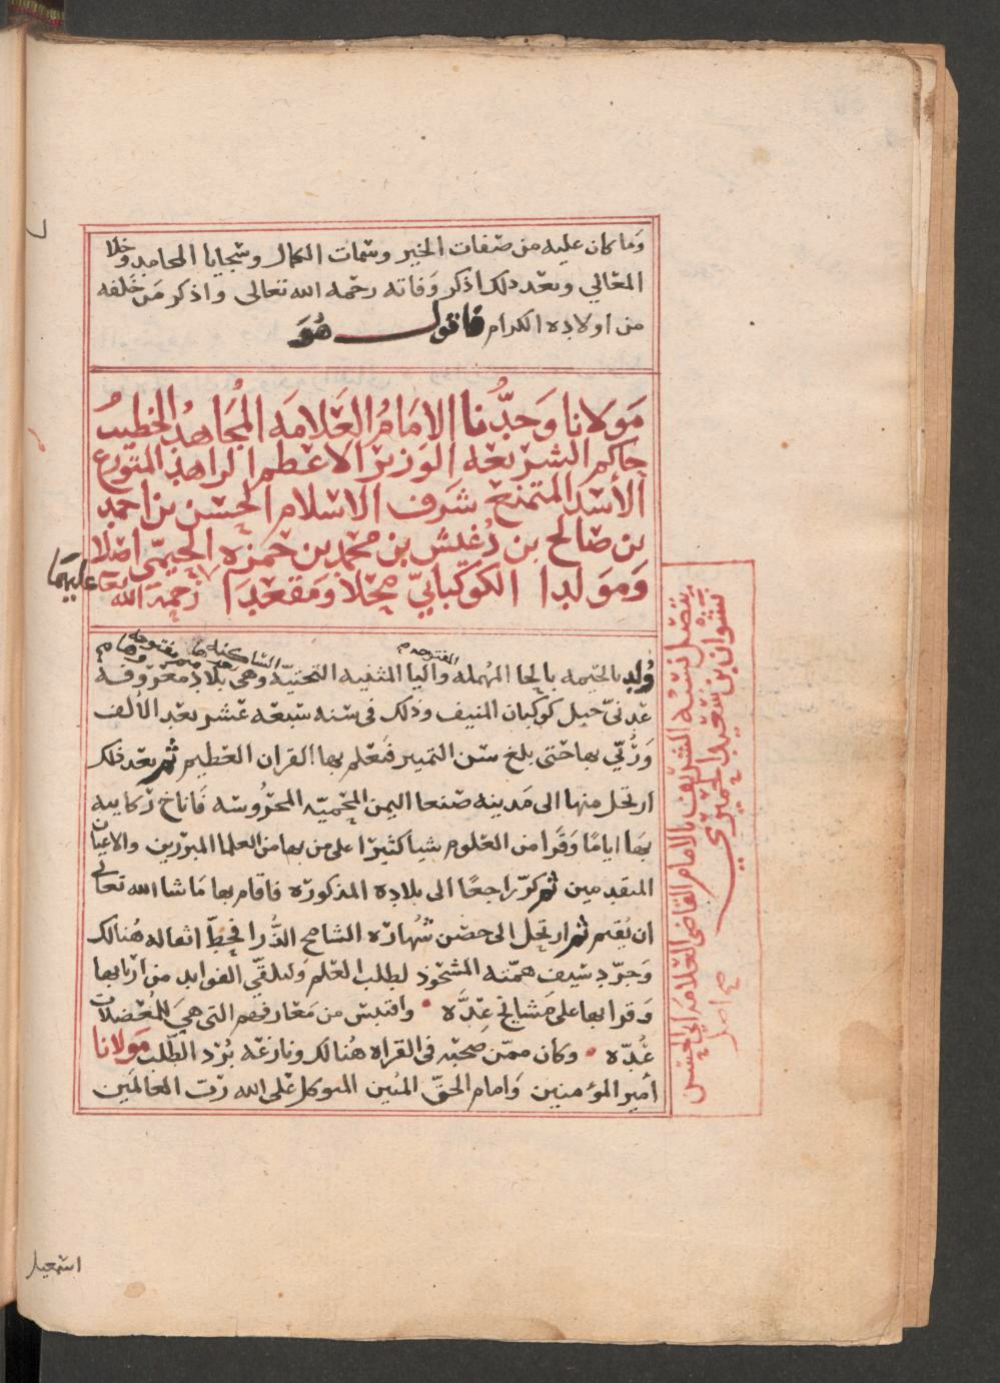 وما كان عليه من صفات الخير وسمات الكمال وسجايا المحامد وخلا
المعالي وبعد ذلك اذكر وفاته رحمه الله تعالى واذكر من خلفه
من اولاده الكرام فاقول هُوَ
مَولانا وَجدُّنا الامَامُ العَلامَه المُجَاهدُ الخطيبُ
حاكم الشريعه الوزير الاعظم الزاهد المتورع
الأسد المتمنع شرف الاسلام الحسن بن احمد
بن صالح بن دُغيش بن محمد بن حمزه الحيميّ اصلا
وَمَولدا الكوكبانيّ محلا ومقعدا رحمة الله تعا
عليهما
وُلِد بالحَيمه بالحا المهمله المفتوحه واليا المثنيه التحتيّه الساكنه وميم مفتوحه وهى بلاد معروفه
غدنيّ جبل كوكبان المنيف وذلك فى سنه سبعه عشر بعد الألف
وَرُبّي بها حتى بلغ سن التمييز فتعلم بها القران العظيم ثم بعد ذلك
ارتحل منها الى مدينه صنعا اليمن المحميّه المحرُوسه فاناخ ركايبه
بها ايامًا وَقَرا من العلوم شيا كثيرًا على من بها من العلما المبرزين والاعيان
المتقدمين ثم كرّ راجعًا الى بلاده المذكوره فاقام بها مَا شا الله تعالى
ان يُقيم ثم ارتحل الى حصن شُهاره الشامخ الذُّرا فحطّ اثقاله هُنالك
وَجرّد سَيف همّته المشحوذ لطلب العلم ولتلقّي الفوايد من اربابها
وَقرا بها على مَشايخ عِدَّه • واقتبس من معارفهم التى هيَ للمُعضلات
عُدّه • وكان ممّن صحبَه فى القراه هُنالك ونازعَه بُرْد الطّلب مَولانا
أمير المؤمنين وَامام الحقّ المبين المتوكل على الله رب العالمين
يتصل نسبه الشريف بالامام القاضى العلامه ابي الحسن
نشوان بن سعيد الحميري
صح اصل
اسمعيل